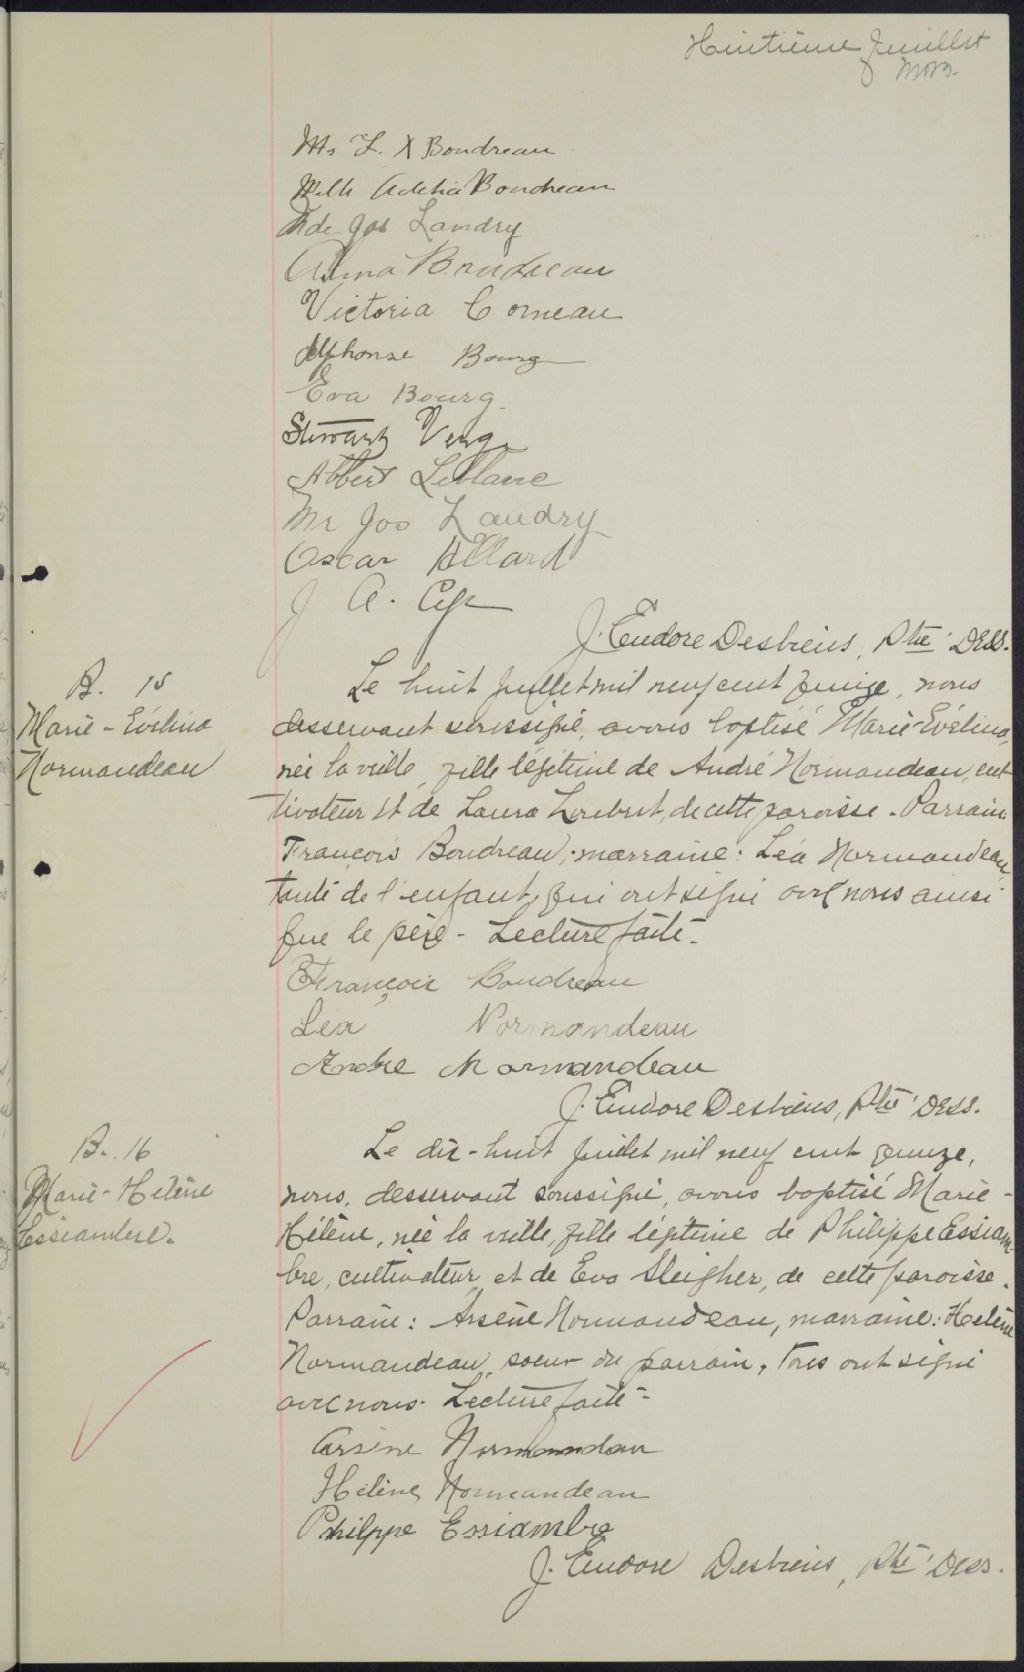 Huitième Juillet
Mrs L. X Boudreau
Melle Adélia Boudreau
Mde Jos Landry
Alma Boudreau
Victoria Comeau
Alphonse Bourg
Eva Bourg
Stewart Verge
Albert Leblanc
Mr Jos Landry
Oscar Allard
J A. Cyr
J. Eudore Desbiens, Ptre Dess.
B. 15
Marie-Évelina
Normandeau
Le huit juillet mil neuf cent quinze, nous
desservant soussigné, avons baptisé Marie-Évelina,
née la veille, fille légitime de André Normandeau, cul
tivateur et de Laura Loubert, de cette paroisse. Parrain:
François Boudreau; marraine: Léa Normandeau,
tante de l'enfant, qui ont signé avec nous ainsi
que le père - Lecture faite.
François Boudreau
Léa Normandeau
Andre Normandeau
J. Eudore Desbiens, Ptre Dess.
B. 16
Marie-Hélène
Essiambre.
Le dix-huit juillet mil neuf cent quinze,
nous, desservant soussigné, avons baptisé Marie-
Hélène, née la veille, fille légitime de Philippe Essiam-
bre, cultivateur, et de Eva Sleigher, de cette paroisse.
Parrain: Arsène Normandeau, marraine: Hélène
Normandeau, soeur du parrain. Tous ont signé
avec nous. Lecture faite -
Arsène Normandeau
Hélène Normandeau
Philppe Essiambre
J. Eudore Desbiens, Ptre Dess.